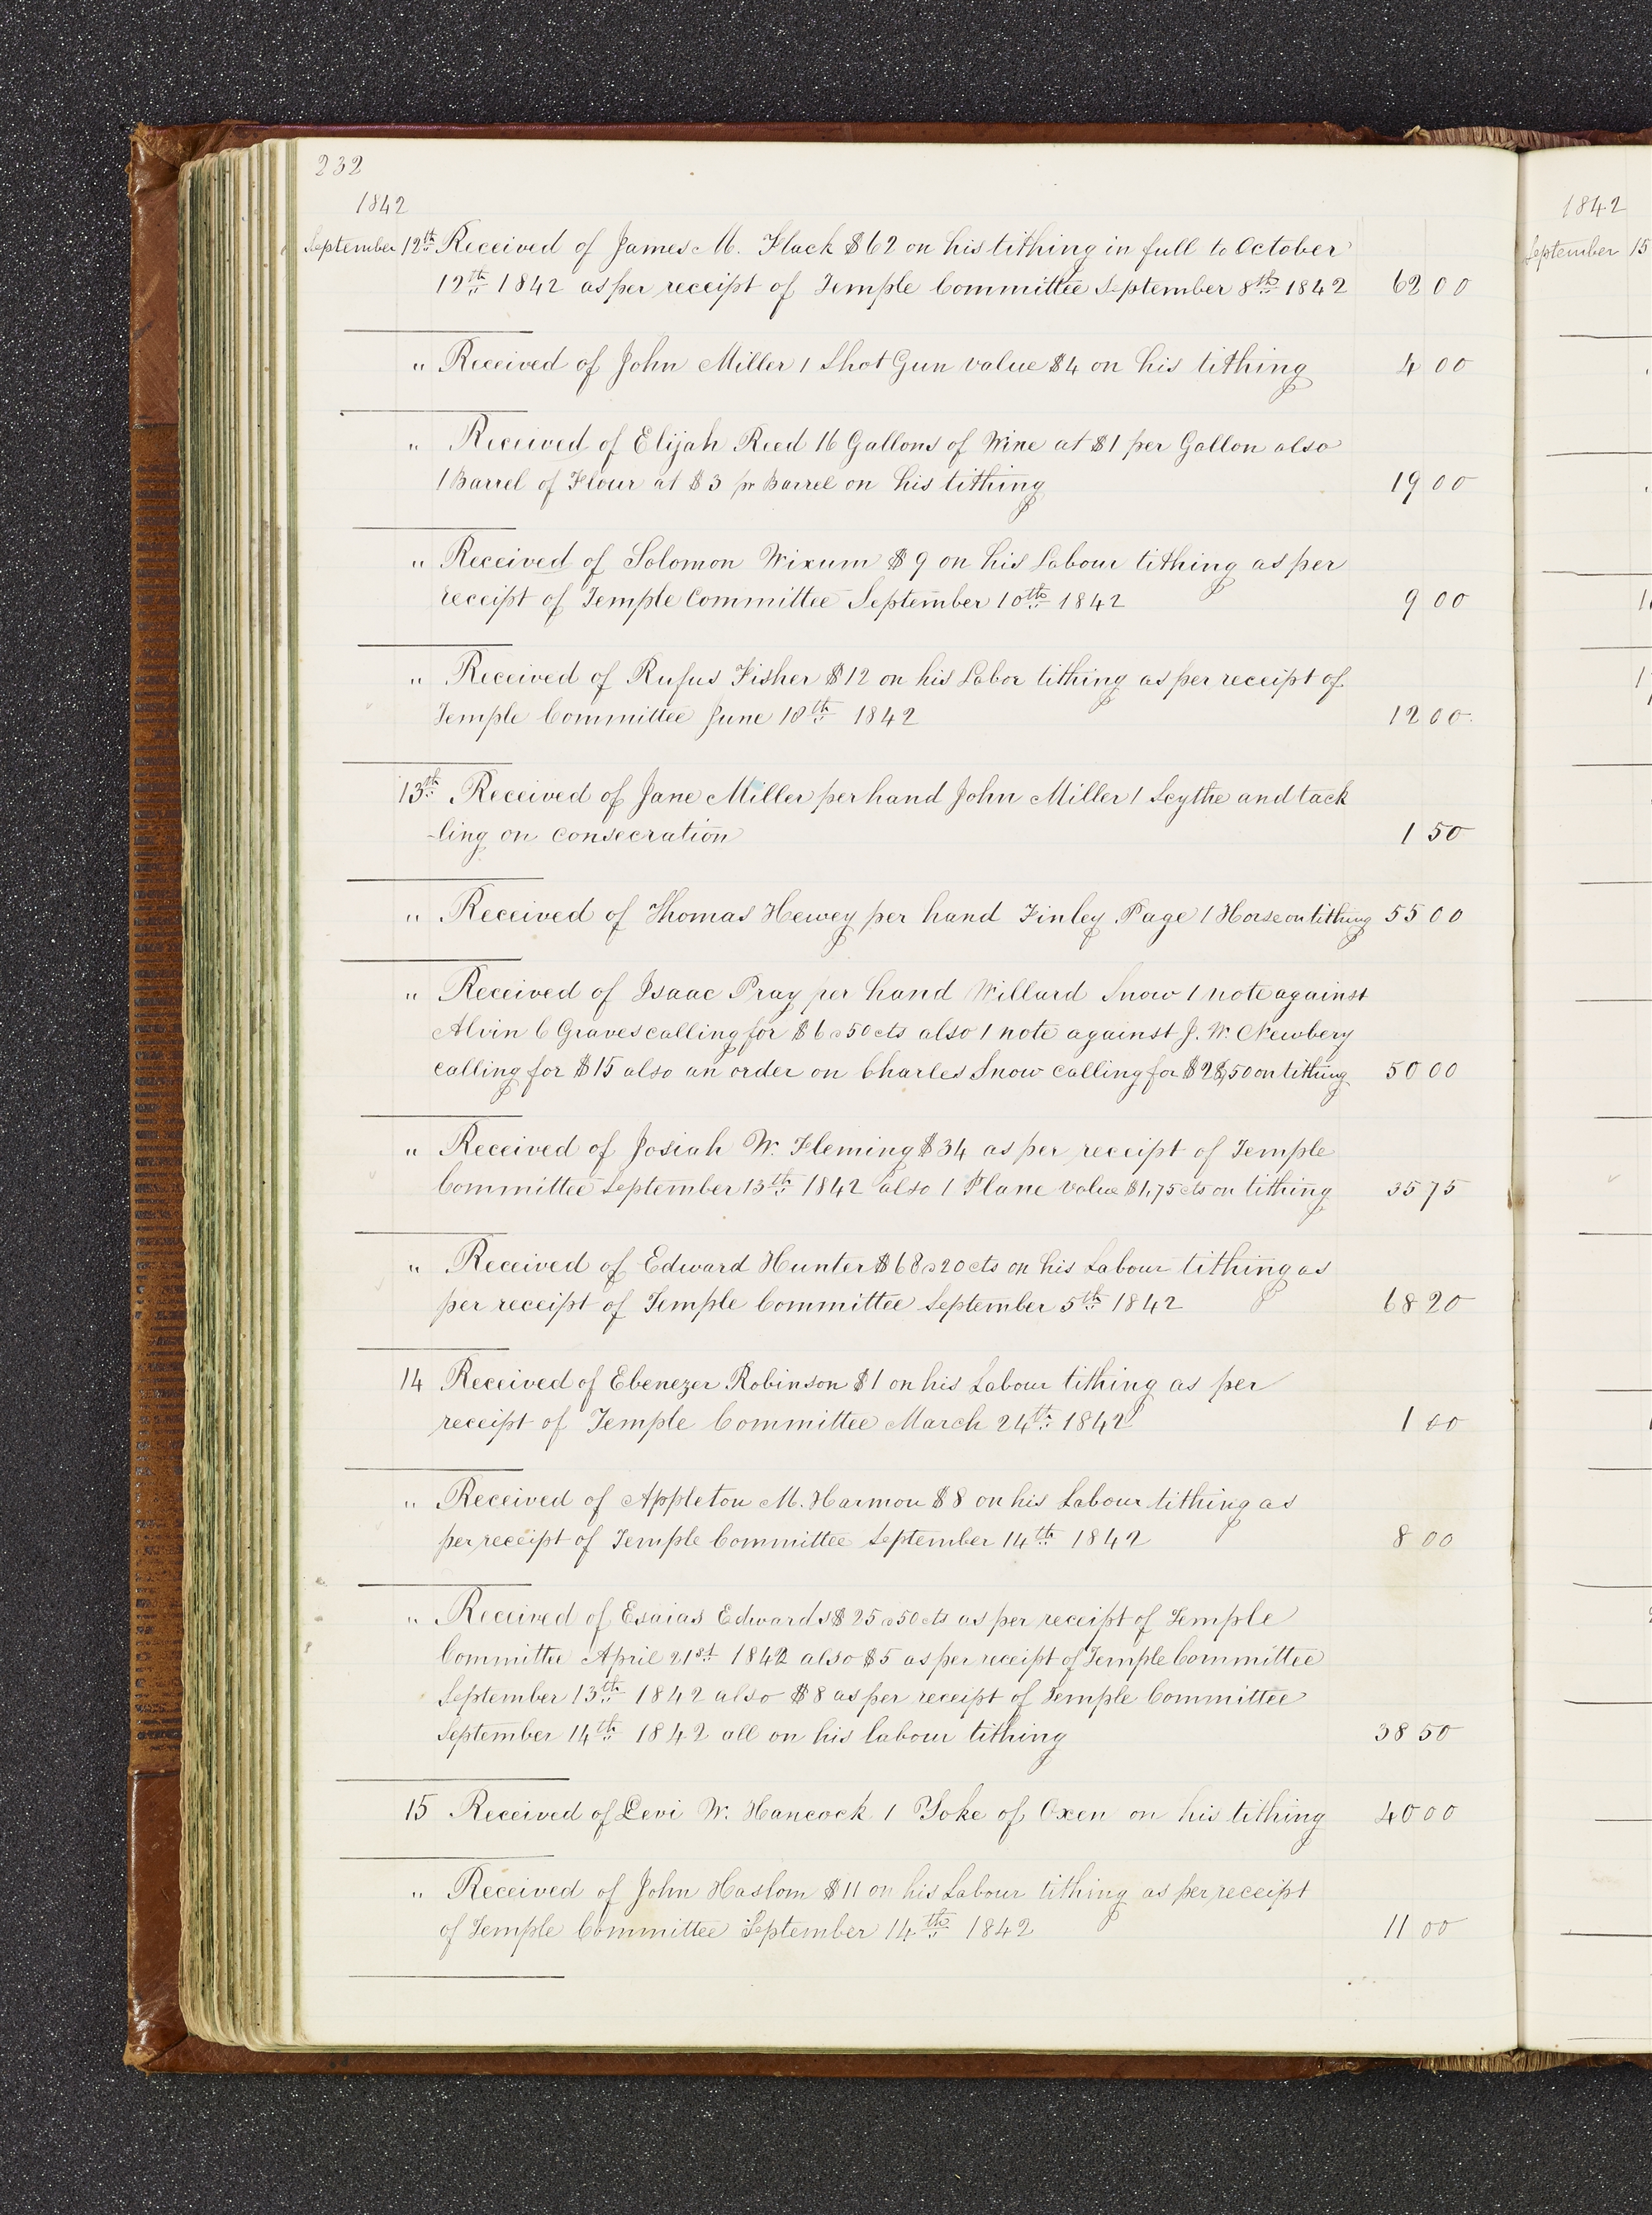 232
1842
September 12th Received of James M. Flack $62 on his tithing in full to October
12th 1842 as per receipt of Temple Committee September 8th 1842 62 00
" Received of John Miller 1 Shot Gun value $4 on his tithing 4 00
" Received of Elijah Reed 16 Gallons of Wine at $1 per Gallon also
1 Barrel of Flour at $3 pr Barrel on his tithing 19 00
" Received of Solomon Wixum $9 on his Labour tithing as per
receipt of Temple Committee September 10th 1842 9 00
" Received of Rufus Fisher $12 on his Labor tithing as per receipt of
Temple Committee June 10th 1842 12 00
13th Received of Jane Miller per hand John Miller 1 Scythe and tack
-ling on consecration 1 50
" Received of Thomas Hewey per hand Finley Page 1 Horse on tithing 55 00
" Received of Isaac Pray per hand Willard Snow 1 note against
Alvin C Graves calling for $6 50 cts also 1 note against J. W. Newbery
calling for $15 also an order on Charles Snow calling for $28,50 on tithing 50 00
" Received of Josiah W. Fleming $34 as per receipt of Temple
Committee September 13th 1842 also 1 Plane value $1,75 cts on tithing 35 75
" Received of Edward Hunter $68 20 cts on his Labour tithing as
per receipt of Temple Committee September 5th 1842 68 20
14 Received of Ebenezer Robinson $1 on his Labour tithing as per
receipt of Temple Committee March 24th 1842 1 00
" Received of Appleton M. Harmon $8 on his Labour tithing as
per receipt of Temple Committee September 14th 1842 8 00
" Received of Esaias Edwards $25 50 cts as per receipt of Temple
Committee April 21st 1842 also $5 as per receipt of Temple Committee
September 13th 1842 also $8 as per receipt of Temple Committee
September 14th 1842 all on his labour tithing 38 50
15 Received of Levi W. Hancock 1 Yoke of Oxen on his tithing 40 00
" Received of John Haslom $11 on his Labour tithing as per receipt
of Temple Committee September 14th 1842 11 00
1842
September 15